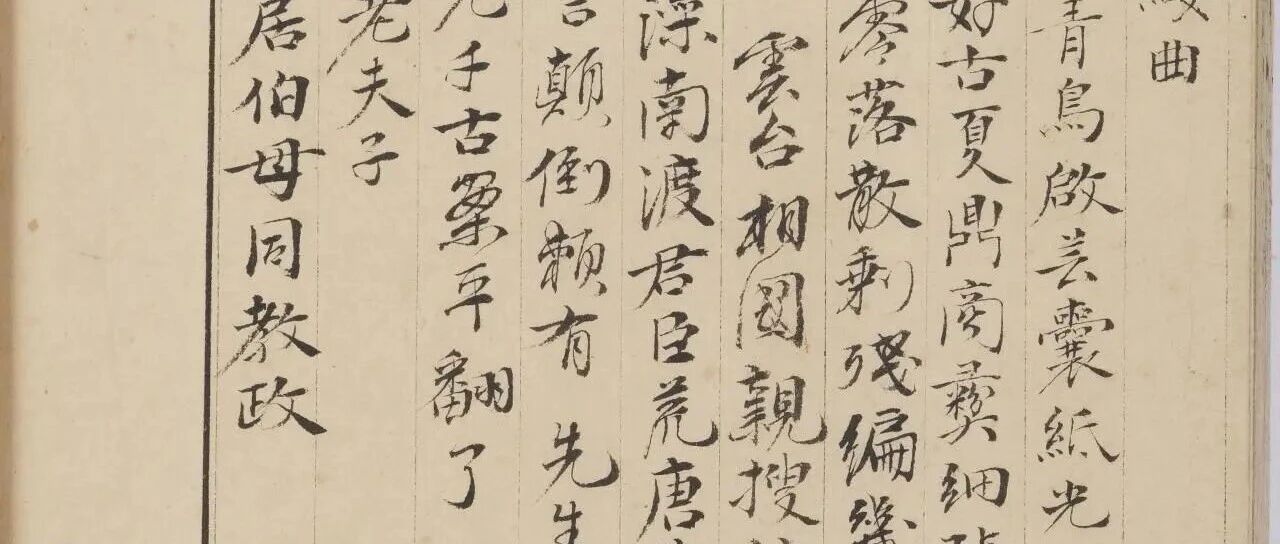 曲
青鳥啟芸囊紙光
好古夏鼎商彝細
零落散剩殘編幾
雲台相國親搜
南渡君臣荒唐
顛倒賴有先生
千古案平翻了
老夫子
居伯母同教政